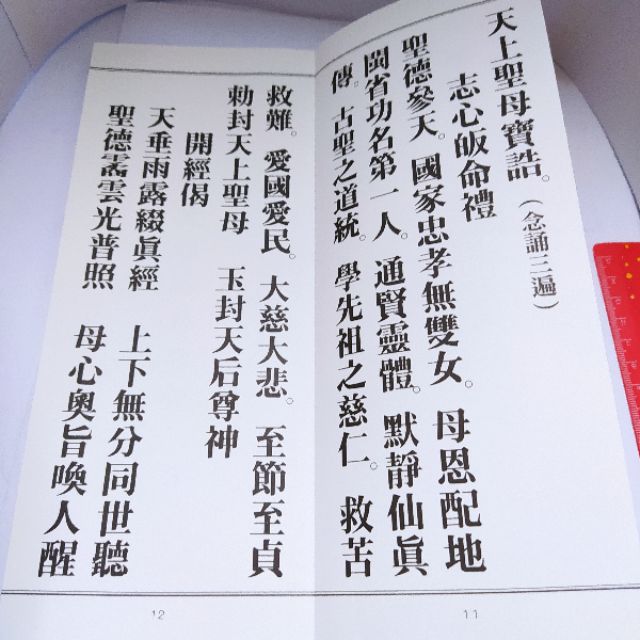 天上聖母寶誥。(念誦三遍)
志心皈命禮
聖德參天。國家忠孝無雙女。母恩配地
閩省功名第一人。通賢靈體。默靜仙眞
傳。古聖之道統。學先祖之慈仁。救苦
11
救難。愛國愛民。大慈大悲。至節至貞
勅封天上聖母 玉封天后尊神
開經偈
天垂雨露綴眞經 上下無分同世聽
聖德霱雲光普照 母心奧旨喚人醒
12